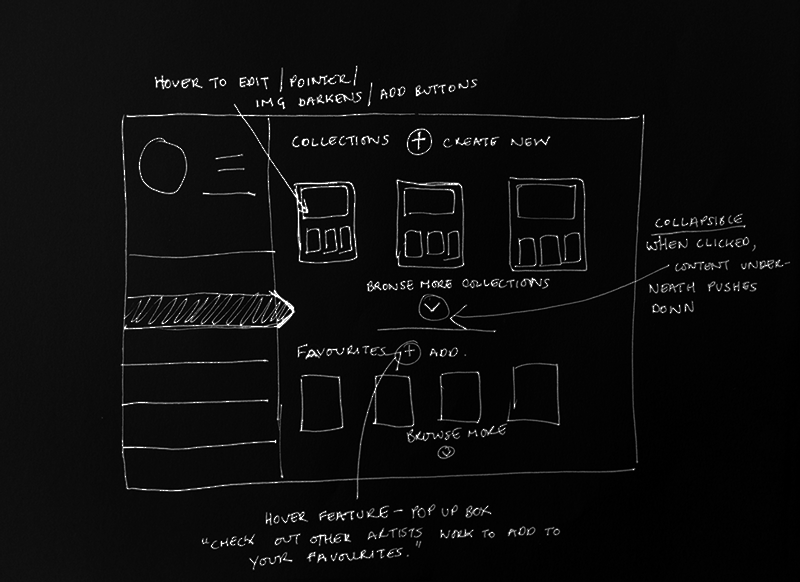 HOVER TO EDIT / POINTER /
IMG DARKENS / ADD BUTTONS
COLLECTIONS + CREATE NEW
COLLAPSIBLE
WHEN CLICKED,
CONTENT UNDER-
NEATH PUSHES
DOWN
BROWSE MORE COLLECTIONS
FAVOURITES + ADD.
BROWSE MORE
HOVER FEATURE - POP UP BOX
"CHECK OUT OTHER ARTISTS WORK TO ADD TO
YOUR FAVOURITES."